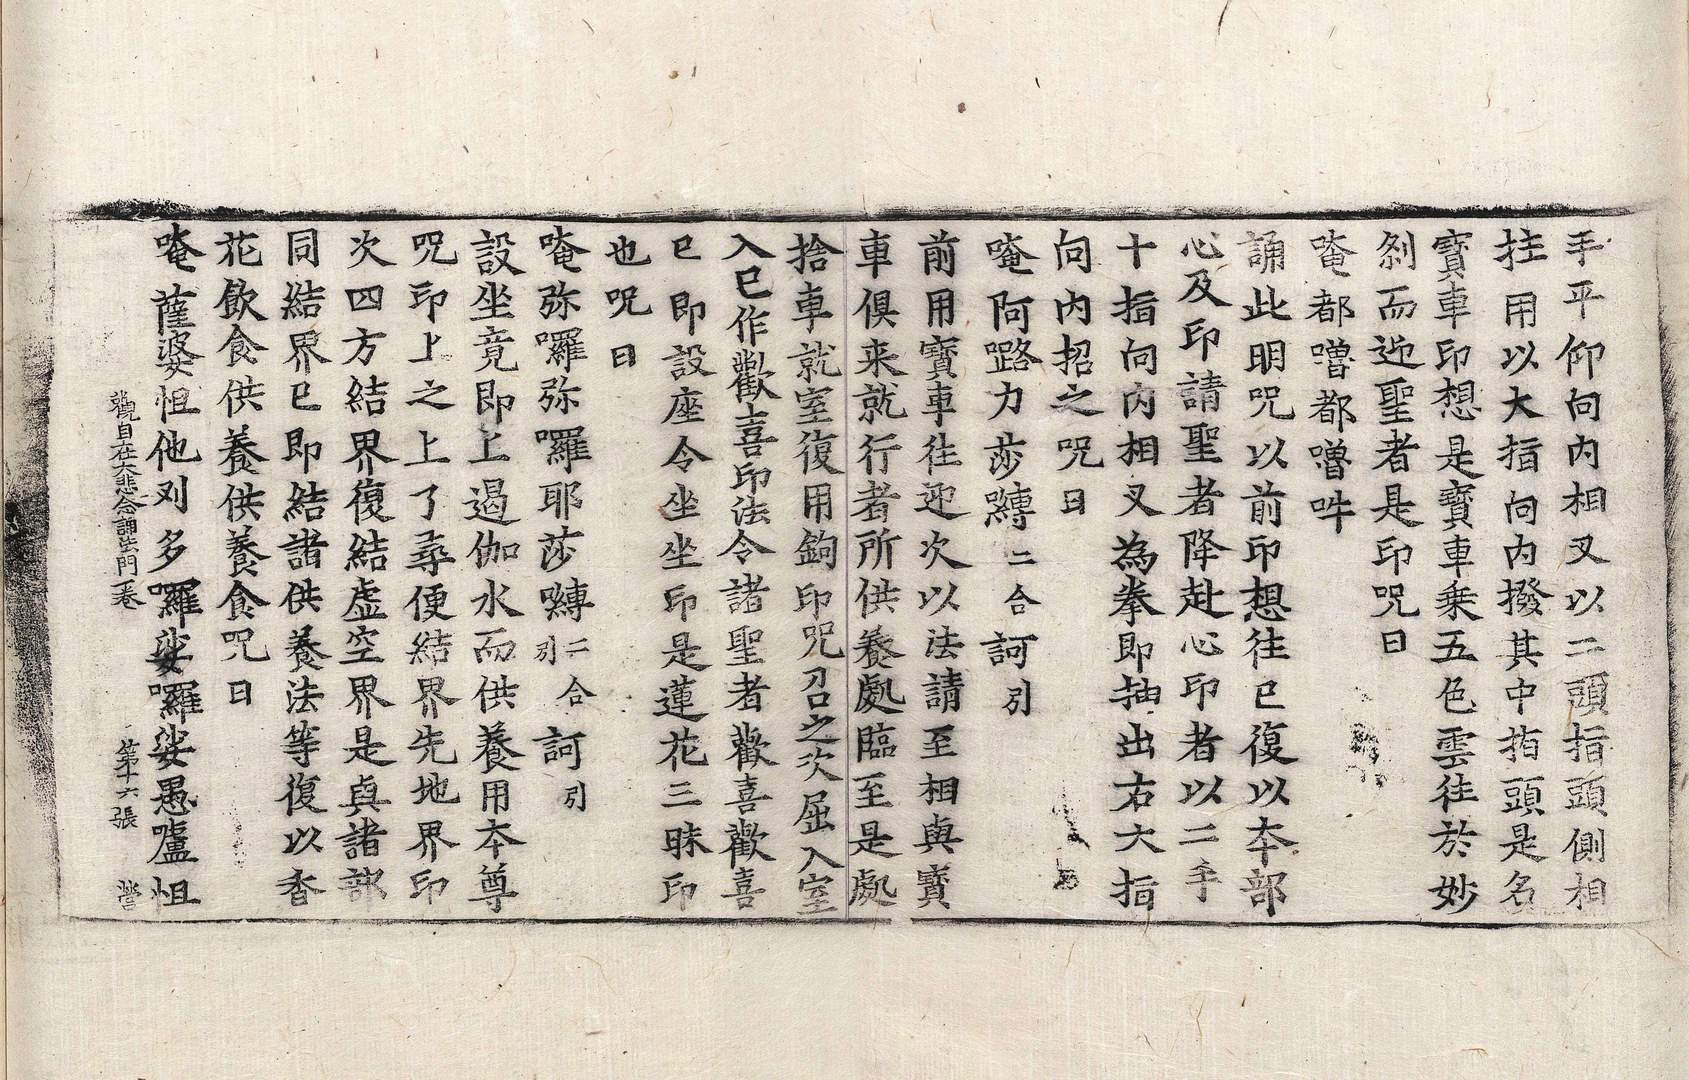 手平仰向內相叉以二頭指頭側相
拄用以大指向內撥其中指頭是名
寶車印想是寶車乗五色雲往於妙
剎而迎聖者是印呪曰
唵都嚕都嚕吽
誦此明呪以前印想往已復以本部
心及印請聖者降赴心印者以二手
十指向內相叉為拳即抽出右大指
向內招之呪曰
唵阿嚕力莎嚩二合訶引
前用寶車往迎次以法請至相與寶
車俱来就行者所供養處臨至是處
捨車就室復用鉤印呪召之次屈入室
入已作歡喜印法令諸聖者歡喜歡喜
已即設座令坐坐印是蓮花三昧印
也呪曰
唵弥囉弥囉耶莎嚩二合引訶引
設坐竟即上遏伽水而供養用本尊
呪印上之上了尋便結界先地界印
次四方結界復結虛空界是與諸部
同結界已即結諸供養法等復以香
花飲食供養供養食呪曰
唵薩婆怛他刘多囉娑囉娑愚嚧怛
觀自在大悲念誦法門一卷 第十六張 營